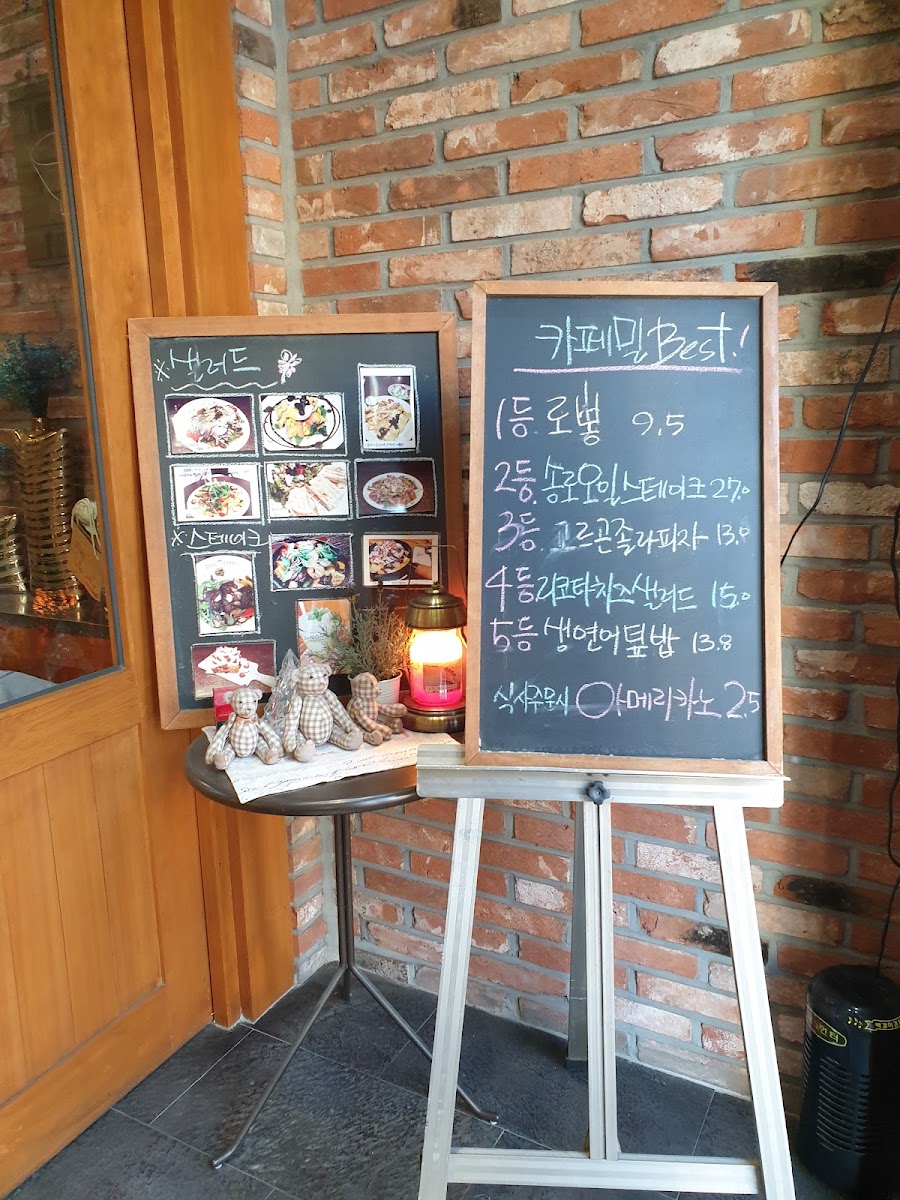 ※샐러드
※스테이크
카페밀Best!
1등. 로뽛 9.5
2등. 송로오일스테이크 27.0
3등. 고르곤졸라피자 13.0
4등. 리코타치즈샐러드 15.0
5등 생연어덮밥 13.8
식사주문시 아메리카노 2.5